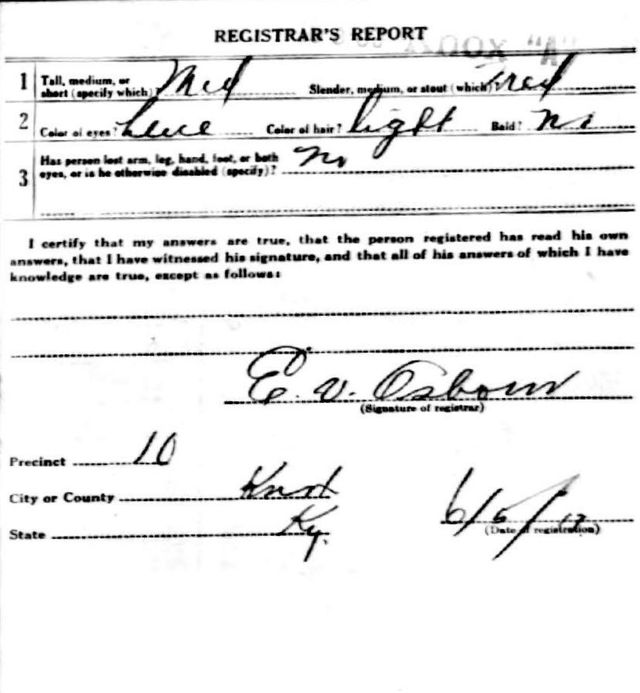 REGISTRAR'S REPORT
1 Tall, medium, or short (specify which)? Med Slender, medium, or stout (which)? med
2 Color of eyes? blue Color of hair? light Bald? No
3 Has person lost arm, leg, hand, foot, or both
eyes, or is he otherwise disabled (specify)? No
I certify that my answers are true, that the person registered has read his own
answers, that I have witnessed his signature, and that all of his answers of which I have
knowledge are true, except as follows:
E. V. Osborn
(Signature of registrar)
Precinct 10
City or County Knott
State Ky. 6/5/17
(Date of registration)